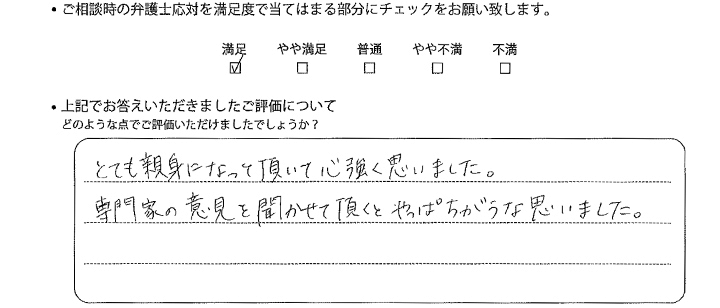 • ご相談時の弁護士応対を満足度で当てはまる部分にチェックをお願い致します。
満足 やや満足 普通 やや不満 不満
☑ ☐ ☐ ☐ ☐
• 上記でお答えいただきましたご評価について
どのような点でご評価いただけましたでしょうか？
とても親身になって頂いて心強く思いました。
専門家の意見を聞かせて頂くとやっぱちがうな思いました。